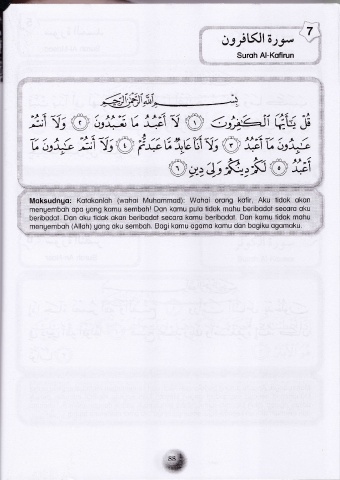 7
سورة الكافرون
Surah Al-Kafirun
بِسْمِ اللَّهِ الرَّحْمَٰنِ الرَّحِيمِ
قُلْ يَٰٓأَيُّهَا ٱلْكَٰفِرُونَ ١ لَآ أَعْبُدُ مَا تَعْبُدُونَ ٢ وَلَآ أَنتُمْ
عَٰبِدُونَ مَآ أَعْبُدُ ٣ وَلَآ أَنَا۠ عَابِدٌ مَّا عَبَدتُّمْ ٤ وَلَآ أَنتُمْ عَٰبِدُونَ مَآ
أَعْبُدُ ٥ لَكُمْ دِينُكُمْ وَلِىَ دِينِ ٦
Maksudnya: Katakanlah (wahai Muhammad): Wahai orang kafir, Aku tidak akan
menyembah apa yang kamu sembah! Dan kamu pula tidak mahu beribadat secara aku
beribadat. Dan aku tidak akan beribadat secara kamu beribadat. Dan kamu tidak mahu
menyembah (Allah) yang aku sembah. Bagi kamu agama kamu dan bagiku agamaku.
88